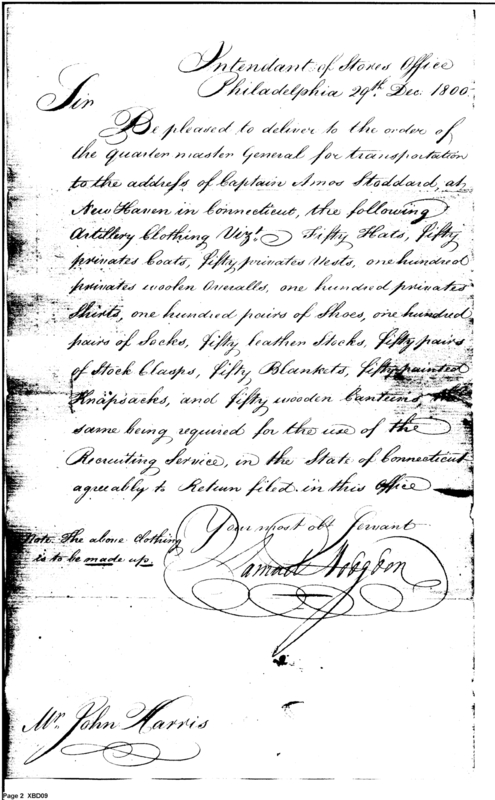 Intendant of Stores Office
Philadelphia 29th. Dec. 1800
Sir
Be pleased to deliver to the order of
the Quarter master General for transportation
to the address of Captain Amos Stoddard, at
New Haven in Connecticut, the following
Artillery Clothing Vizt. Fifty Hats, fifty
privates Coats, fifty privates Vests, one hundred
privates woolen Overalles, one hundred privates
Shirts, one hundred pairs of Shoes, one hundred
pairs of Socks, fifty leather Stocks, fifty pairs
of Stock Clasps, fifty Blankets, fifty painted
Knapsacks, and fifty wooden Canteens
same being required for the use of the
Recruiting Service, in the State of Connecticut
agreeably to Return filed in this Office
Your most obt Servant
Samuel Hodgdon
Note. The above Clothing
is to be made up.
Mr. John Harris
Page 2 XBD09